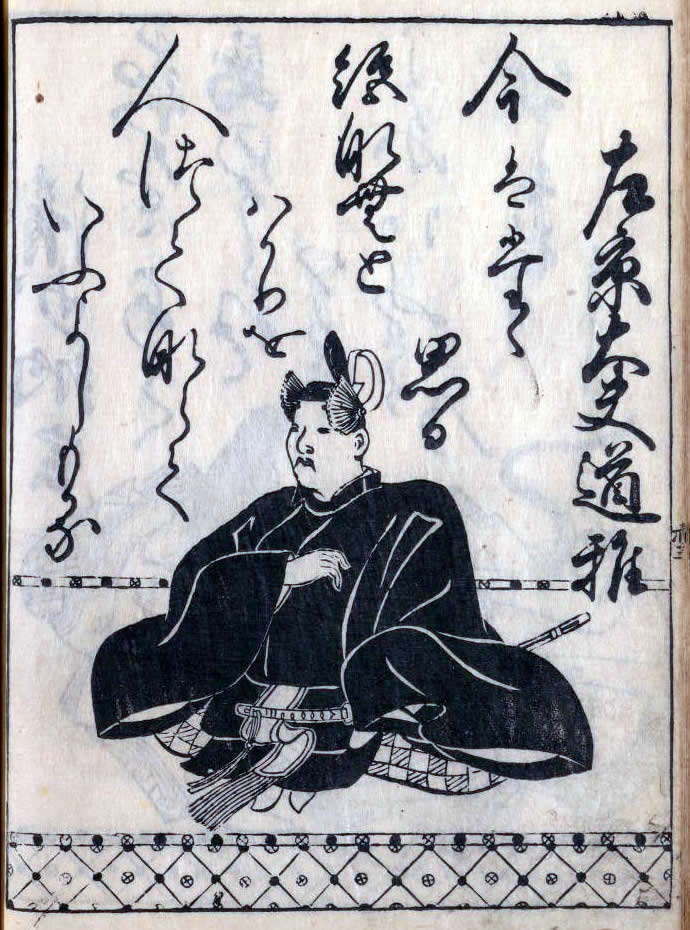 左京大夫道雅
今はたゝ
思ひ
絶なむと
はかりを
人つてならて
いふよしもかな